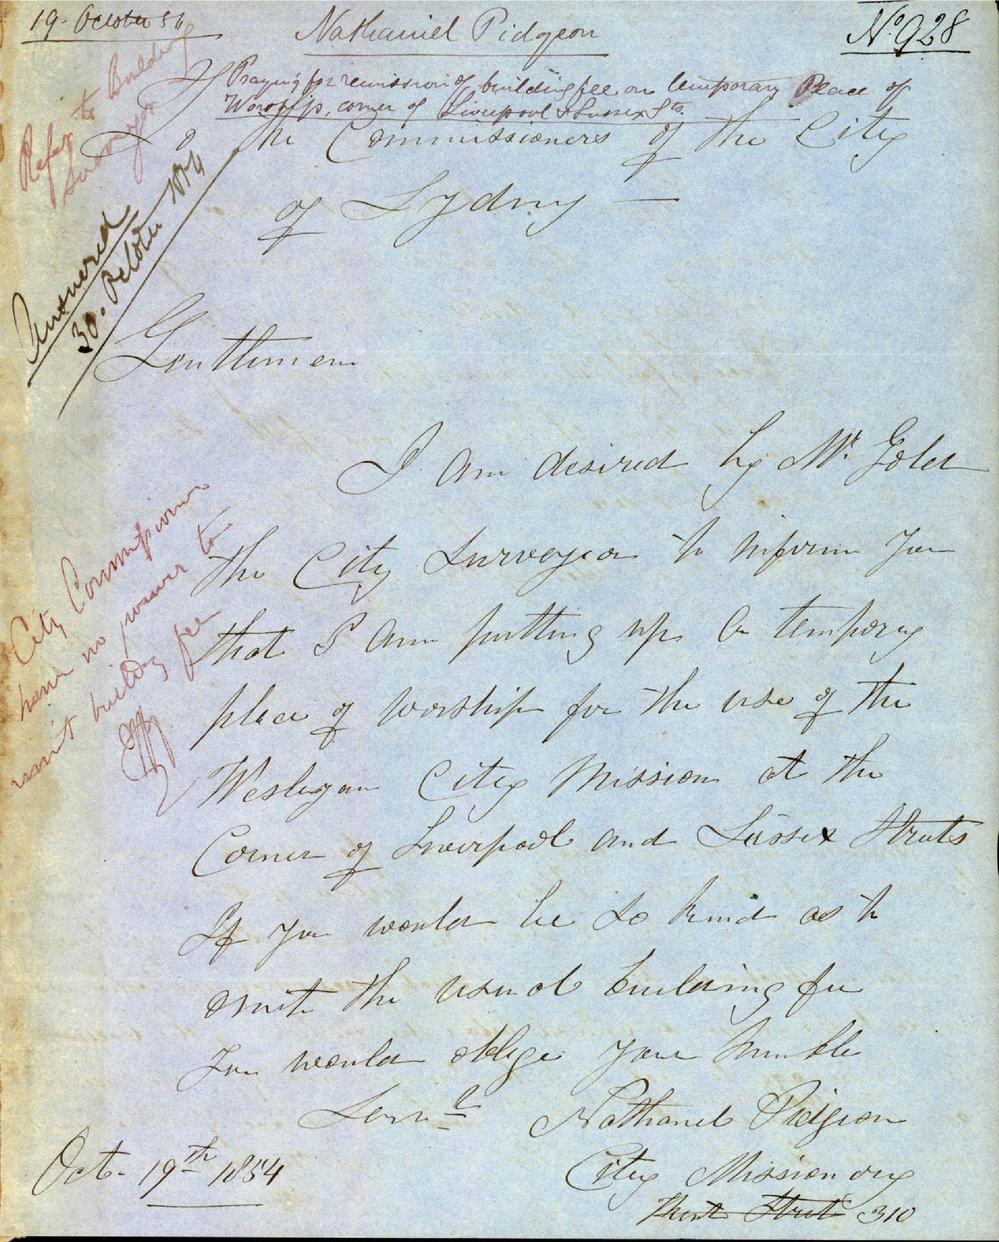 19. October 54
Nathaniel Pidgeon
No. 928
Praying for remission of building fee on temporary Place of
Worship, corner of Liverpool & Sussex Sts
Refer to Building
Surveyor
Answered
30. October 1854
To the Commissioners of the City
of Sydney —
Gentlemen
I am desired by Mr. Goled
the City Surveyor to inform you
that I am putting up a tempory
place of worship for the use of the
Wesleyan City Mission at the
Corner of Liverpool and Sussex Streets
If you would be so kind as to
omit the usual building fee
You would oblige your humble
Servt
Nathaniel Pidgeon
City Missionary
Kent Street 310
Oct. 19th 1854
City Commissioners
have no power to
remit building fee